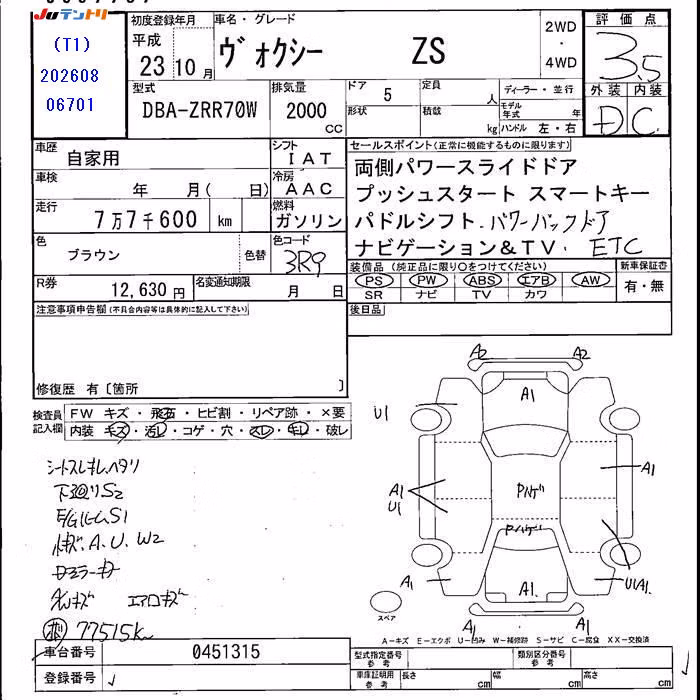 JUテントリ
(T1)
202608
06701
初度登録年月
平成
23 10 月
車名・グレード
ヴォクシー ZS
2WD
・
4WD
評価点
3.5
外装 内装
D C
型式
DBA-ZRR70W
排気量
2000
CC
ドア
5
形状
定員
人
積載
kg
ディーラー・並行
モデル
年式 年
ハンドル 左・右
車歴
自家用
シフト
IAT
車検
年 月( 日)
冷房
AAC
走行
7万7千600 km
燃料
ガソリン
色
ブラウン
色替
色コード
3R9
R券
12,630 円
名変通知期限
月 日
セールスポイント(正常に機能するものに限ります)
両側パワースライドドア
プッシュスタート スマートキー
パドルシフト・パワーバックドア
ナビゲーション&TV・ETC
装備品(純正品に限り○をつけてください)
PS PW ABS エアB AW
SR ナビ TV カワ
新車保証書
有・無
注意事項申告欄(不具合内容等は具体的に記入して下さい)
後日品
修復歴 有〔箇所 〕
検査員
記入欄
FW キズ・飛石・ヒビ割・リペア跡・×要
内装 キズ・汚し・コゲ・穴・スレ・キレ・破し
シートスレキレヘタリ
下廻りS2
A、U、W2
エアロキズ
77515km
A2
A2
A1
U1
A1
A1
U1
Pハゲ
Pハゲ
A1
A1
U1A1
A1
A1
スペア
A-キズ E-エクボ U-凹み W-補修跡 S-サビ C-腐食 XX-交換済
車台番号
0451315
登録番号
型式指定番号
参考
類別区分番号
参考
車庫証明用
参考
長さ cm 幅 cm 高さ cm